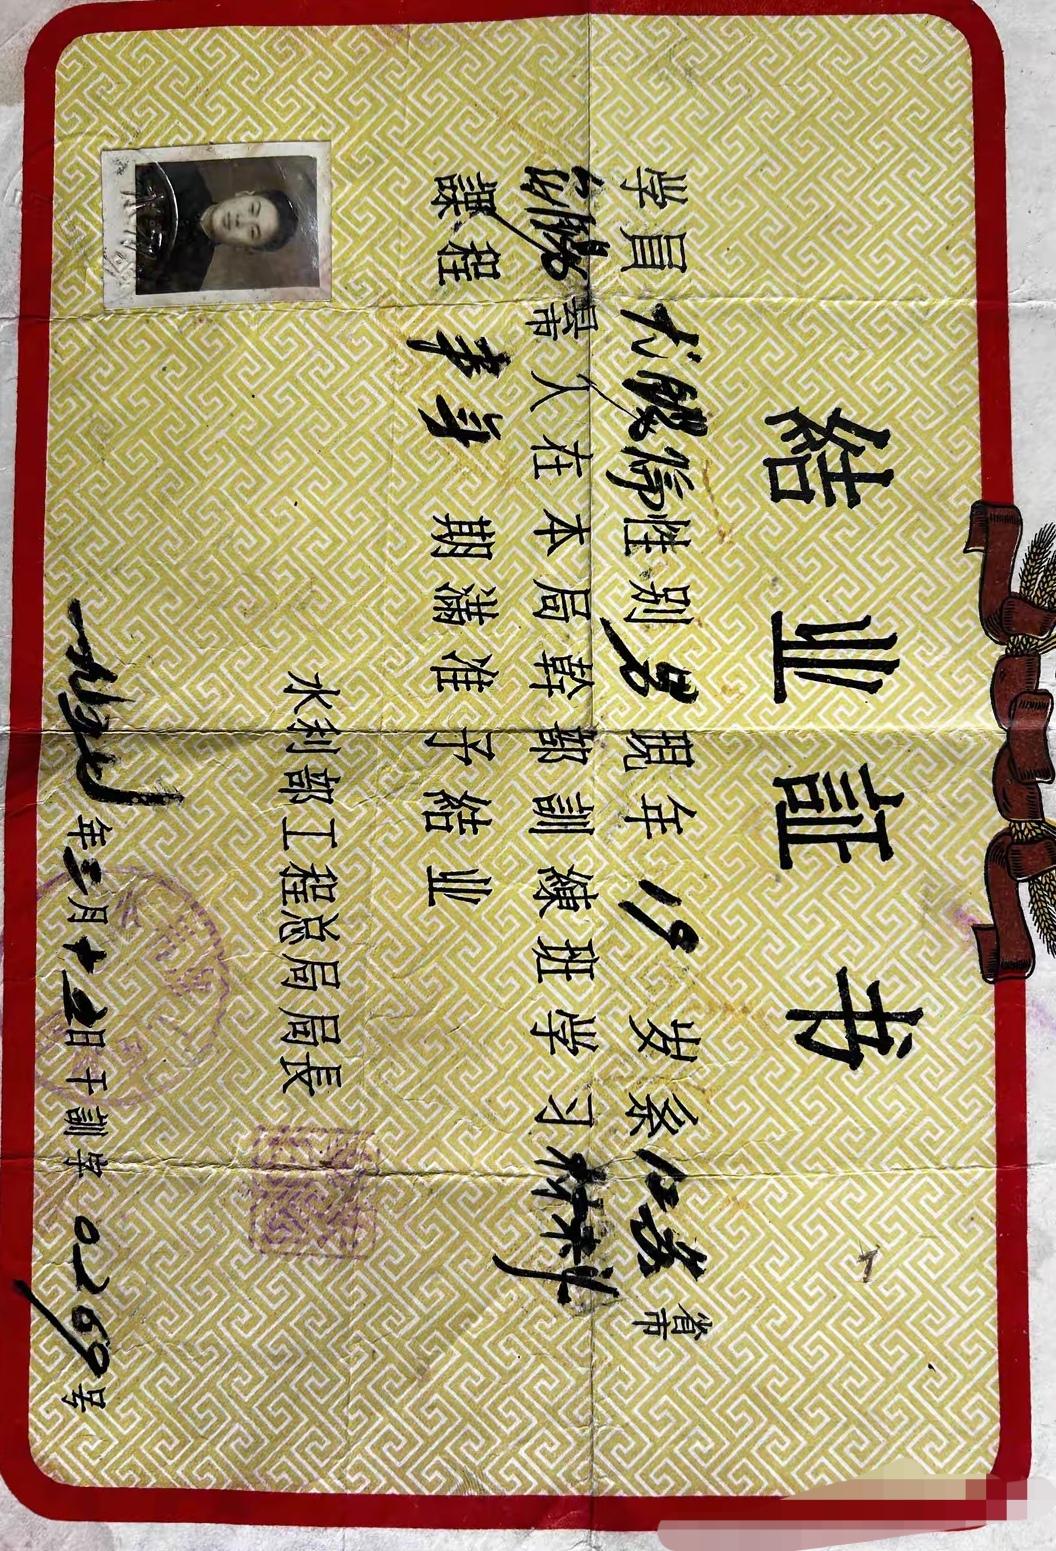 結业証书
学員尤服偉性别男現年19岁系江苏省市
县市人在本局幹部訓練班学习材料
課程 期滿准予結业
水利部工程总局局長
一九五七年三月十二日干訓字0269号